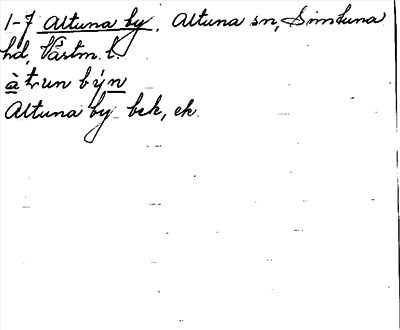 1-7 Altuna by, Altuna sn, Simtuna
hd, Västm. l.
à trun býn
Altuna by bek, ek.